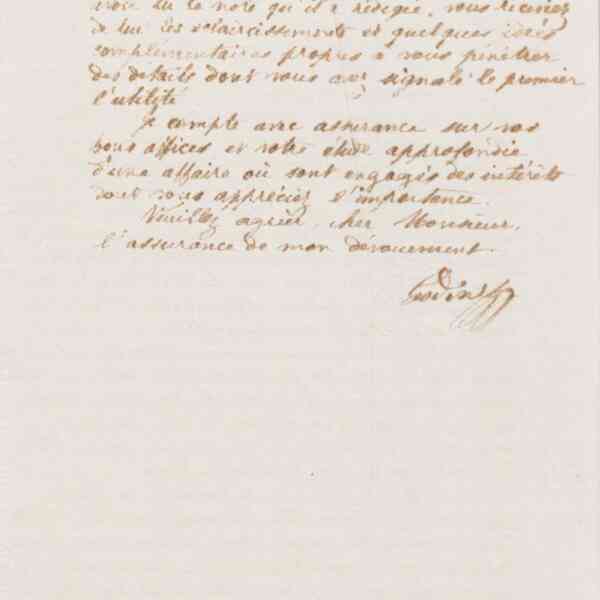 lu la note qu'il a rédigée, vous recevrez
de lui les éclaircissements et quelques idées
complémentaires propres à vous pénétrer
des détails dont vous avez signalé le premier
l'utilité
Je compte avec assurance sur vos
bons offices et votre étude approfondie
d'une affaire où sont engagés des intérêts
dont vous appréciez l'importance.
Veuillez agréer, cher Monsieur,
l'assurance de mon dévouement.
Godin